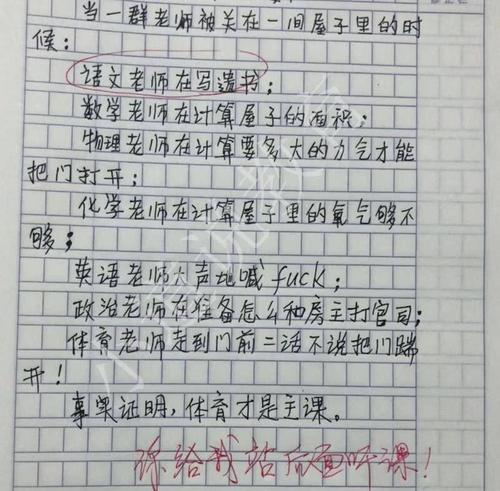 当一群老师被关在一间屋子里的时
候：
语文老师在写遗书；
数学老师在计算屋子的面积；
物理老师在计算要多大的力气才能
把门打开；
化学老师在计算屋子里的氧气够不
够；
英语老师大声地喊fuck；
政治老师在准备怎么和房主打官司；
体育老师走到门前二话不说把门踹
开！
事实证明，体育才是主课。
你给我站后面听课！